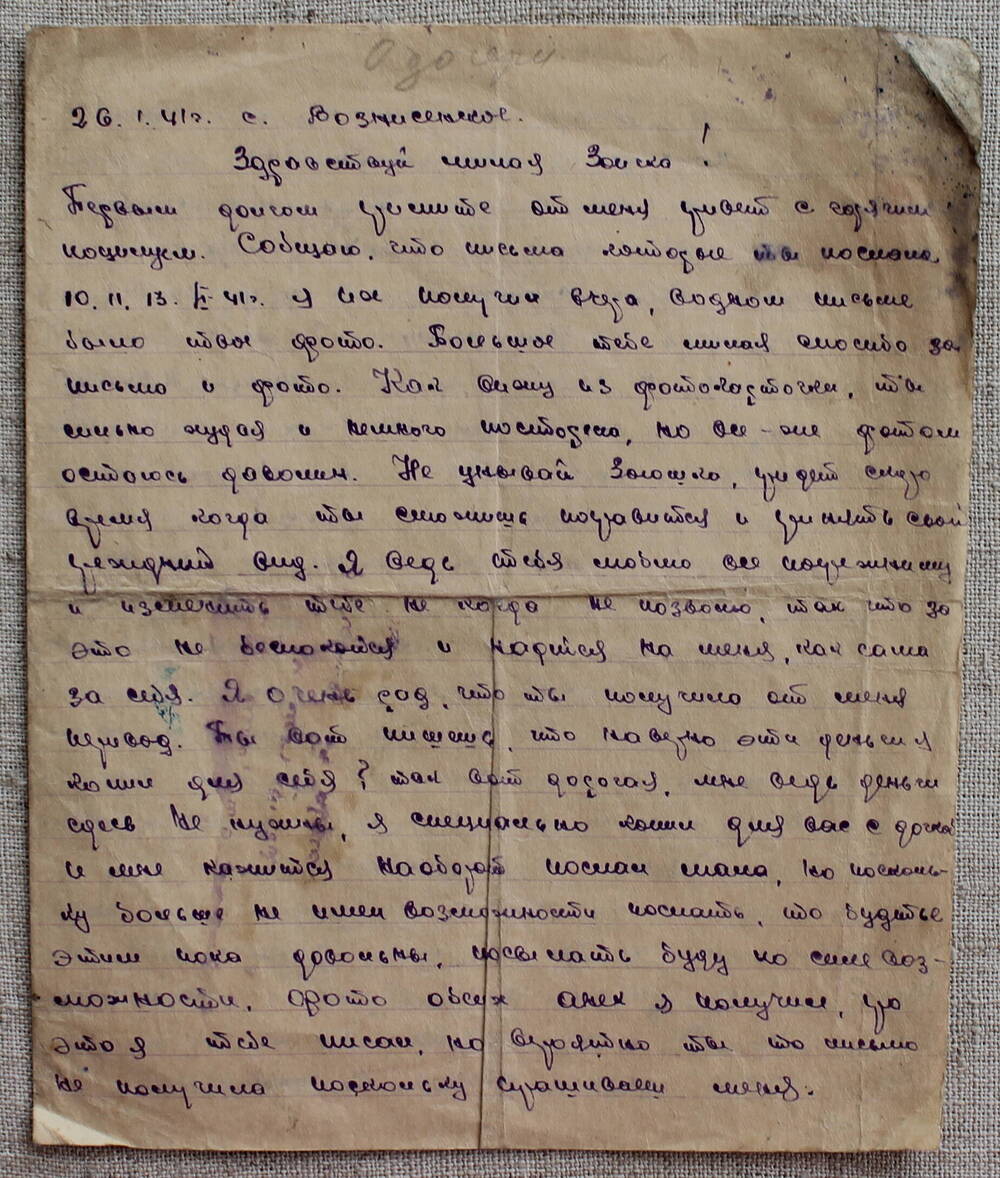 26. I. 41г. с. Вознисенское.
Здравствуй милая Зоика!
Первым долгом примите от меня привет с горячим
поцелуем. Собщаю, что письма которые ты послала
10. 11. 13. I- 41г. я их получил вчера, водном письме
было твое фото. Большое тебе милая спосибо за
письмо и фото. Как вижу из фотокарточки, ты
сильно худая и немного постарела, но все-же фотом
остаюсь доволин. Не унывай Зоюшка, придет скоро
время когда ты сможишь поправится и принять свой
прежидний вид. Я ведь тебя люблю все попрежниму
и изменить тебе не когда не позволю, так что за
это не беспокойся и надейся на меня, как сама
за себя. Я очень рад, что ты получила от меня
перивод. Ты вот пишешь, что наверно эти деньги я
копил для себя? так вот дорогая, мне ведь деньги
сдесь не нужны, я специально копил для вас с дочкой
и мне кажится наоборот послал мало, но посколь-
ку больше не имел возможности послать, то будьте
этим пока довольны, посылать буду по силе воз-
можности. Фото обеих анек я получил, про
это я тебе писал, но вероятно ты то письмо
не получила поскольку спрашиваеш меня.